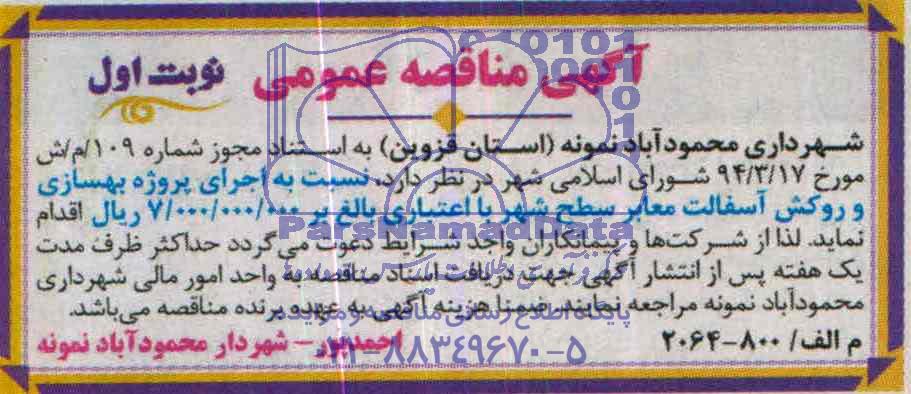 آگهی مناقصه عمومی
نوبت اول
شهرداری محمودآباد نمونه (استان قزوین) به استناد مجوز شماره ۱۰۹/م/ش
مورخ ۹۴/۳/۱۷ شورای اسلامی شهر در نظر دارد، نسبت به اجرای پروژه بهسازی
و روکش آسفالت معابر سطح شهر با اعتباری بالغ بر ۷/۰۰۰/۰۰۰/۰۰۰ ریال اقدام
نماید. لذا از شرکت‌ها و پیمانکاران واجد شرایط دعوت می‌گردد حداکثر ظرف مدت
یک هفته پس از انتشار آگهی جهت دریافت اسناد مناقصه به واحد امور مالی شهرداری
محمودآباد نمونه مراجعه نمایند. ضمنا هزینه آگهی به عهده برنده مناقصه می‌باشد.
م الف/ ۸۰۰-۲۰۶۴
احمدپور – شهردار محمودآباد نمونه
ParsNamadData
پایگاه اطلاع رسانی مناقصه و مزایده
۰۲۱-۸۸۳۴۹۶۷۰-۵